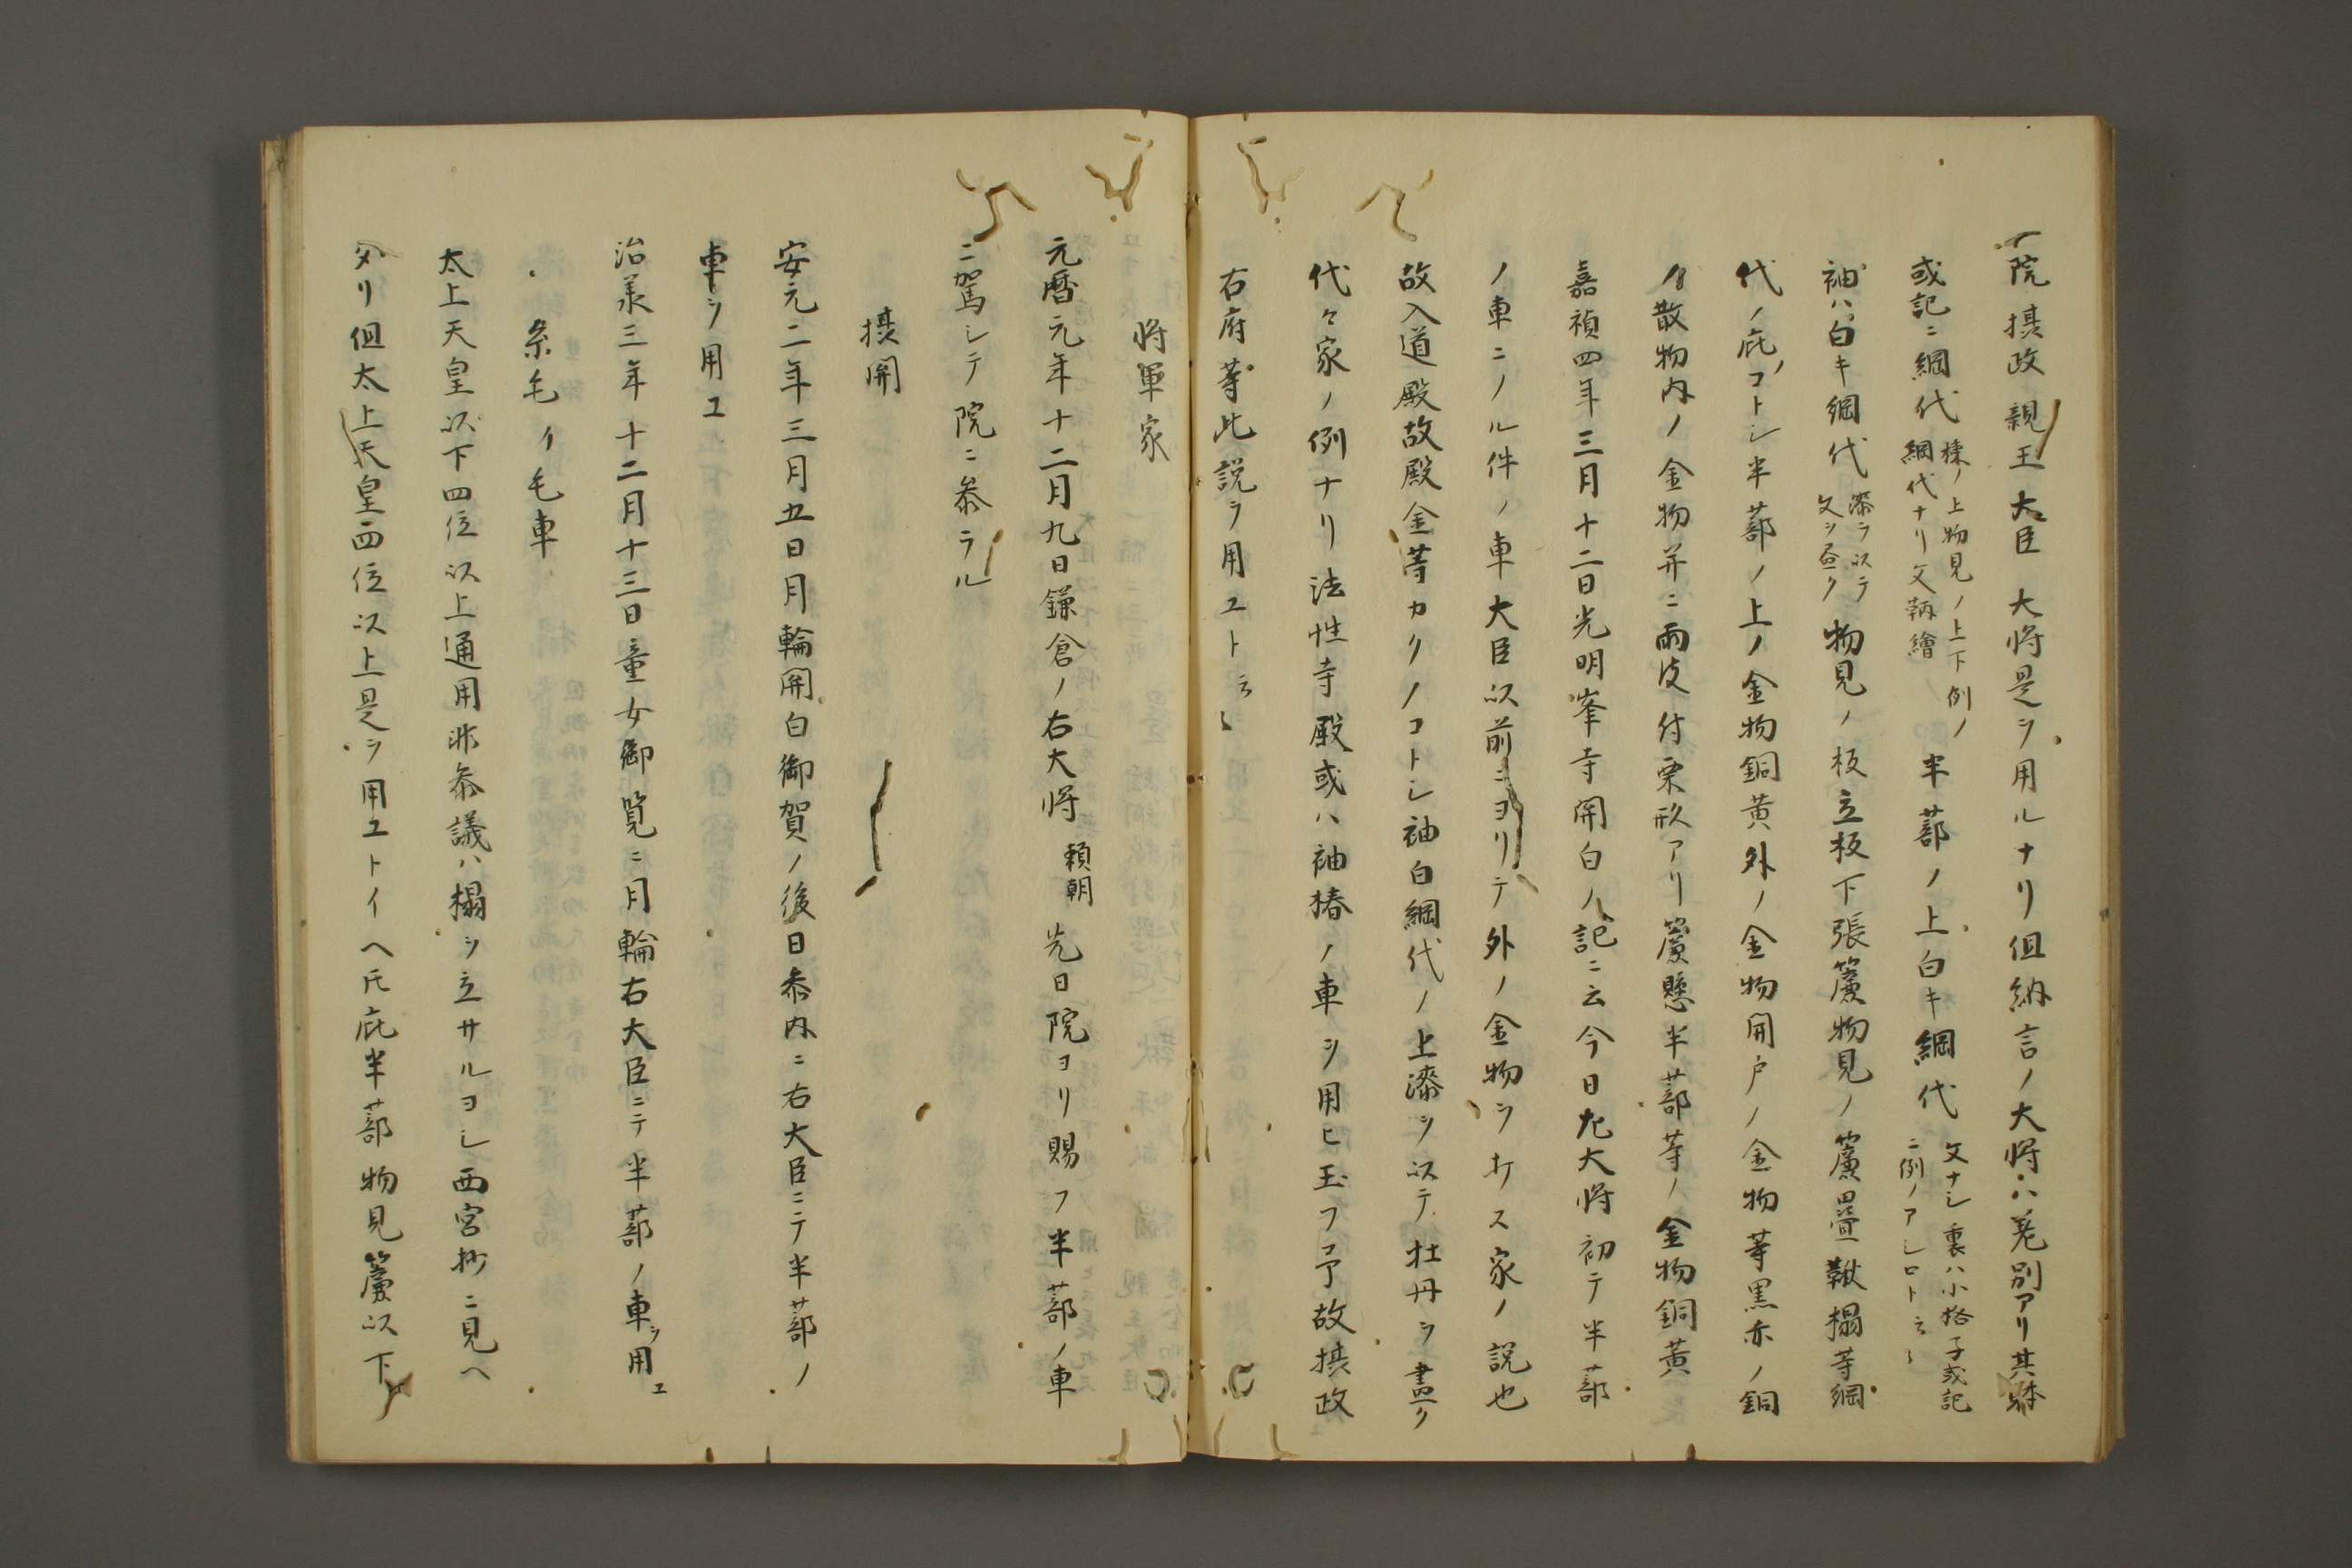 一院摂政親王大臣大将是ヲ用ルナリ但納言ノ大将ハ差別アリ其躰
或記ニ網代棟ノ上物見ノ上下例ノ網代ナリ文軿繪半蔀ノ上白キ網代文ナシ裏ハ小格子或記ニ例ノアシロト云〻
袖ハ白キ網代漆ヲ以テ文ヲ畫ク物見ノ板立板下張簾物見ノ簾畳鞦榻等網
代ノ庇ノコトシ半蔀ノ上ノ金物銅黄外ノ金物開戸ノ金物等黒赤ノ銅
ノ散物内ノ金物并ニ雨皮付栗形アリ簾懸半蔀等ノ金物銅黄
嘉禎四年三月十二日光明峯寺関白ノ記ニ云今日左大将初テ半蔀
ノ車ニノル件ノ車大臣以前ニヨリテ外ノ金物ヲ打ス家ノ説也
故入道殿故殿金等カクノコトシ袖白網代ノ上漆ヲ以テ牡丹ヲ畫ク
代々家ノ例ナリ法性寺殿或ハ袖椿ノ車ヲ用ヒ玉フ予故摂政
右府等此説ヲ用ユト云〻
将軍家
元暦元年十二月九日鎌倉ノ右大将頼朝先日院ヨリ賜フ半蔀ノ車
ニ駕シテ院ニ参ラル
摂関
安元二年三月五日月輪関白御賀ノ後日参内ニ右大臣ニテ半蔀ノ
車ヲ用ユ
治承三年十二月十三日童女御覧ニ月輪右大臣ニテ半蔀ノ車ヲ用ユ
糸毛ノ毛車
太上天皇以下四位以上通用非参議ハ榻ヲ立サルヨシ西宮抄ニ見ヘ
タリ但太上天皇四位以上是ヲ用ユトイヘ氏庇半蔀物見簾以下